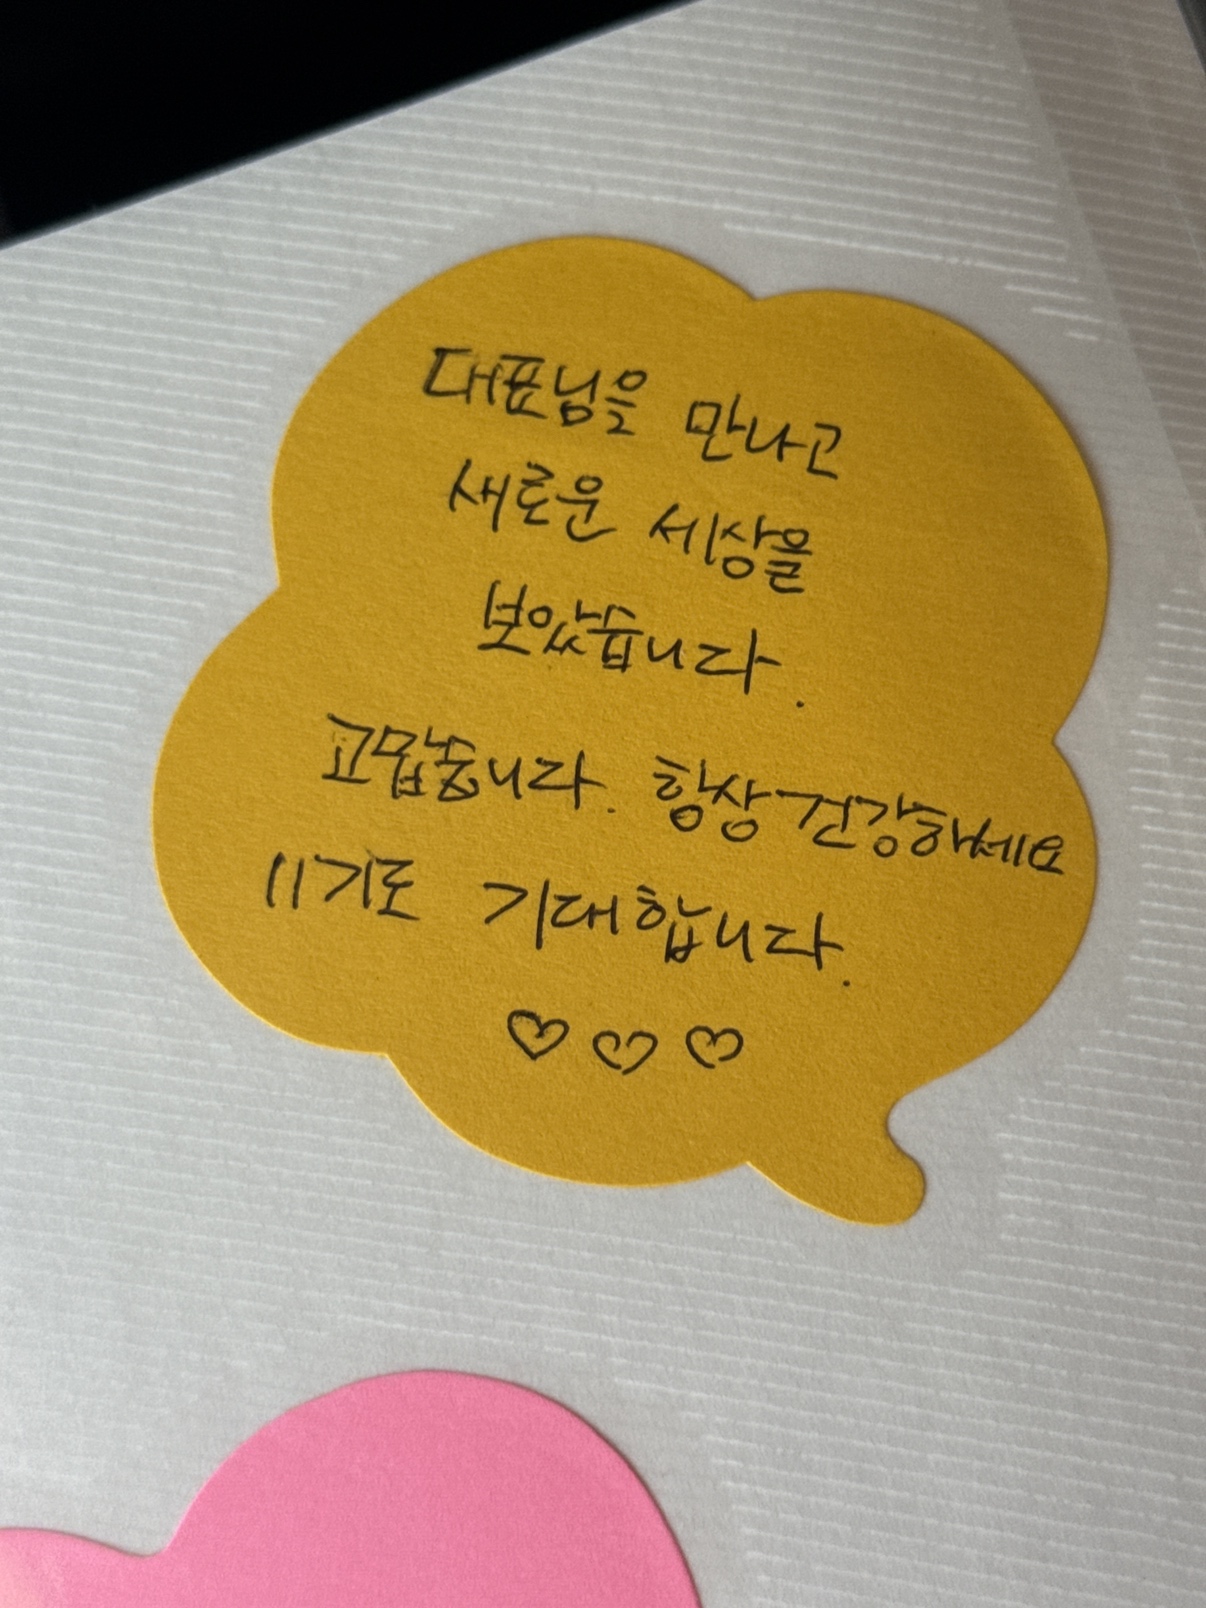 대표님을 만나고
새로운 세상을
보았습니다.
고맙습니다. 항상 건강하세요
11기도 기대합니다.
♡♡♡